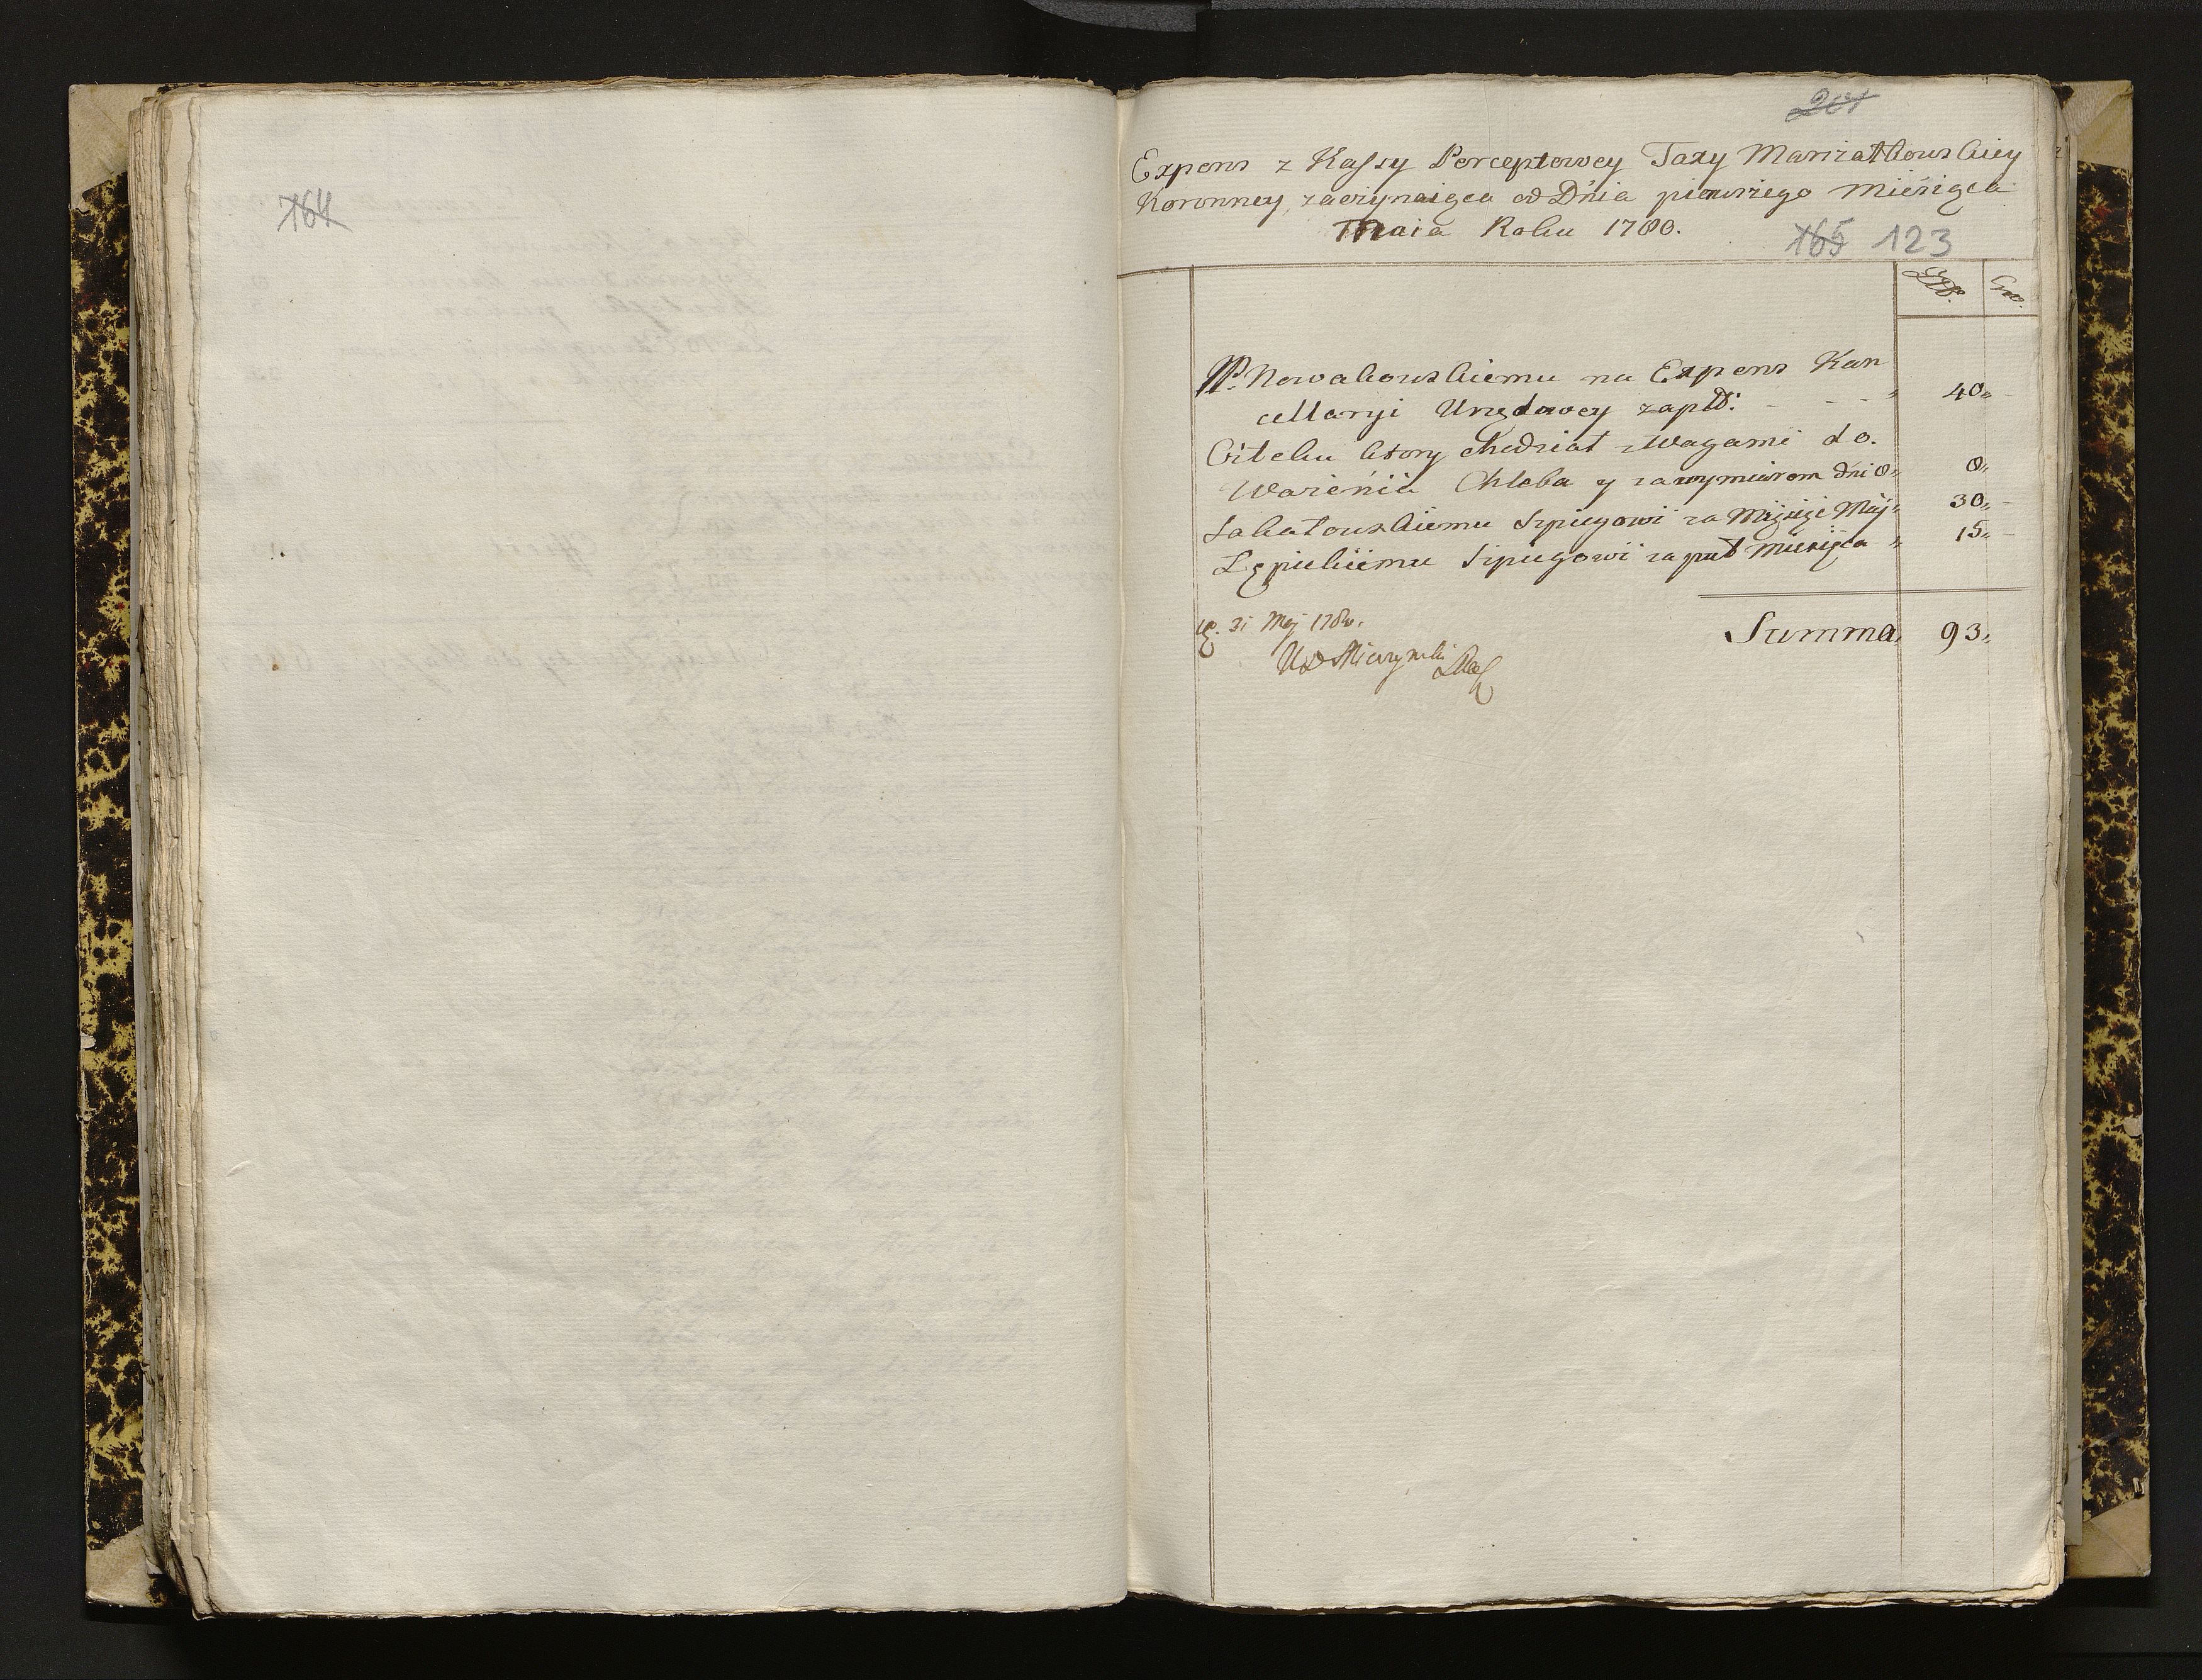 164
201
Expens z Kassy Perceptowey Taxy Marszałkowskiey
Koronney, zaczynaiąca od Dnia pierwszego Miesiąca
Maia Roku 1780.
165 123
Złł. Gro.
JP. Nowakowskiemu na Expens Kan
cellaryi Urzędowey zapłł: - - - " 40,, -
Citelu ktory chodział z Wagami do.
Ważenia Chleba y za wymiarem dni 8,, 8,,
Sakatowskiemu Szpiegowi za Miesiąc Maj" 30,, -
Lępickiemu Szpiegowi za puł Miesiąca " 15,, -
Summa, 93,,
31 Maj 1780.